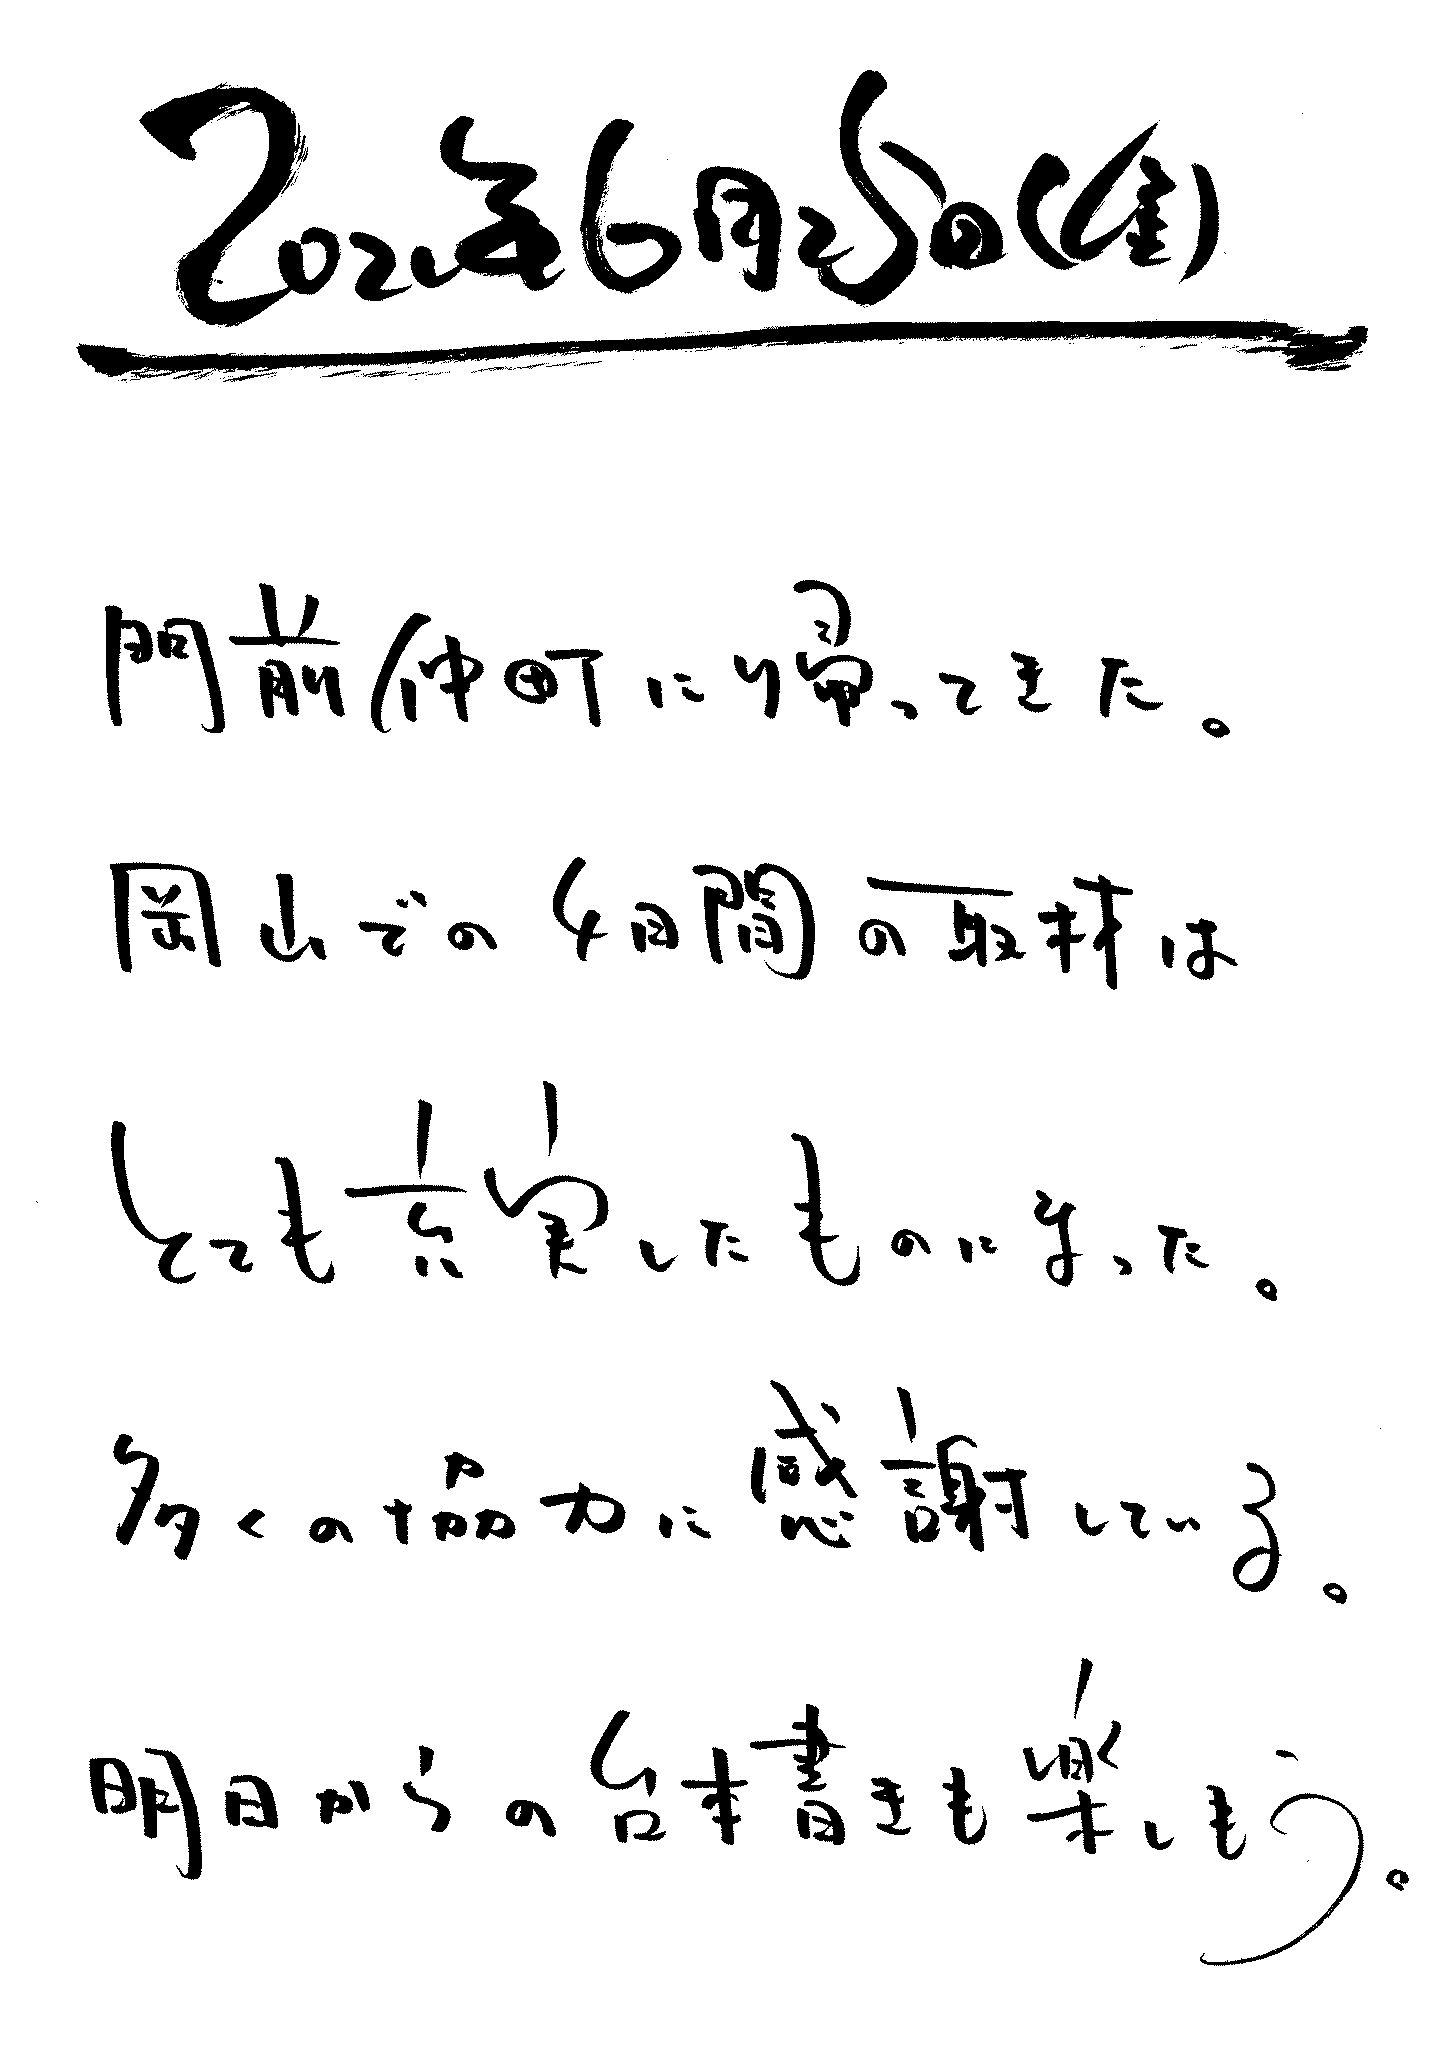 2021年6月25日(金)
門前仲町に帰ってきた。
岡山での4日間の取材は
とても充実したものになった。
多くの協力に感謝している。
明日からの台本書きも楽しもう。